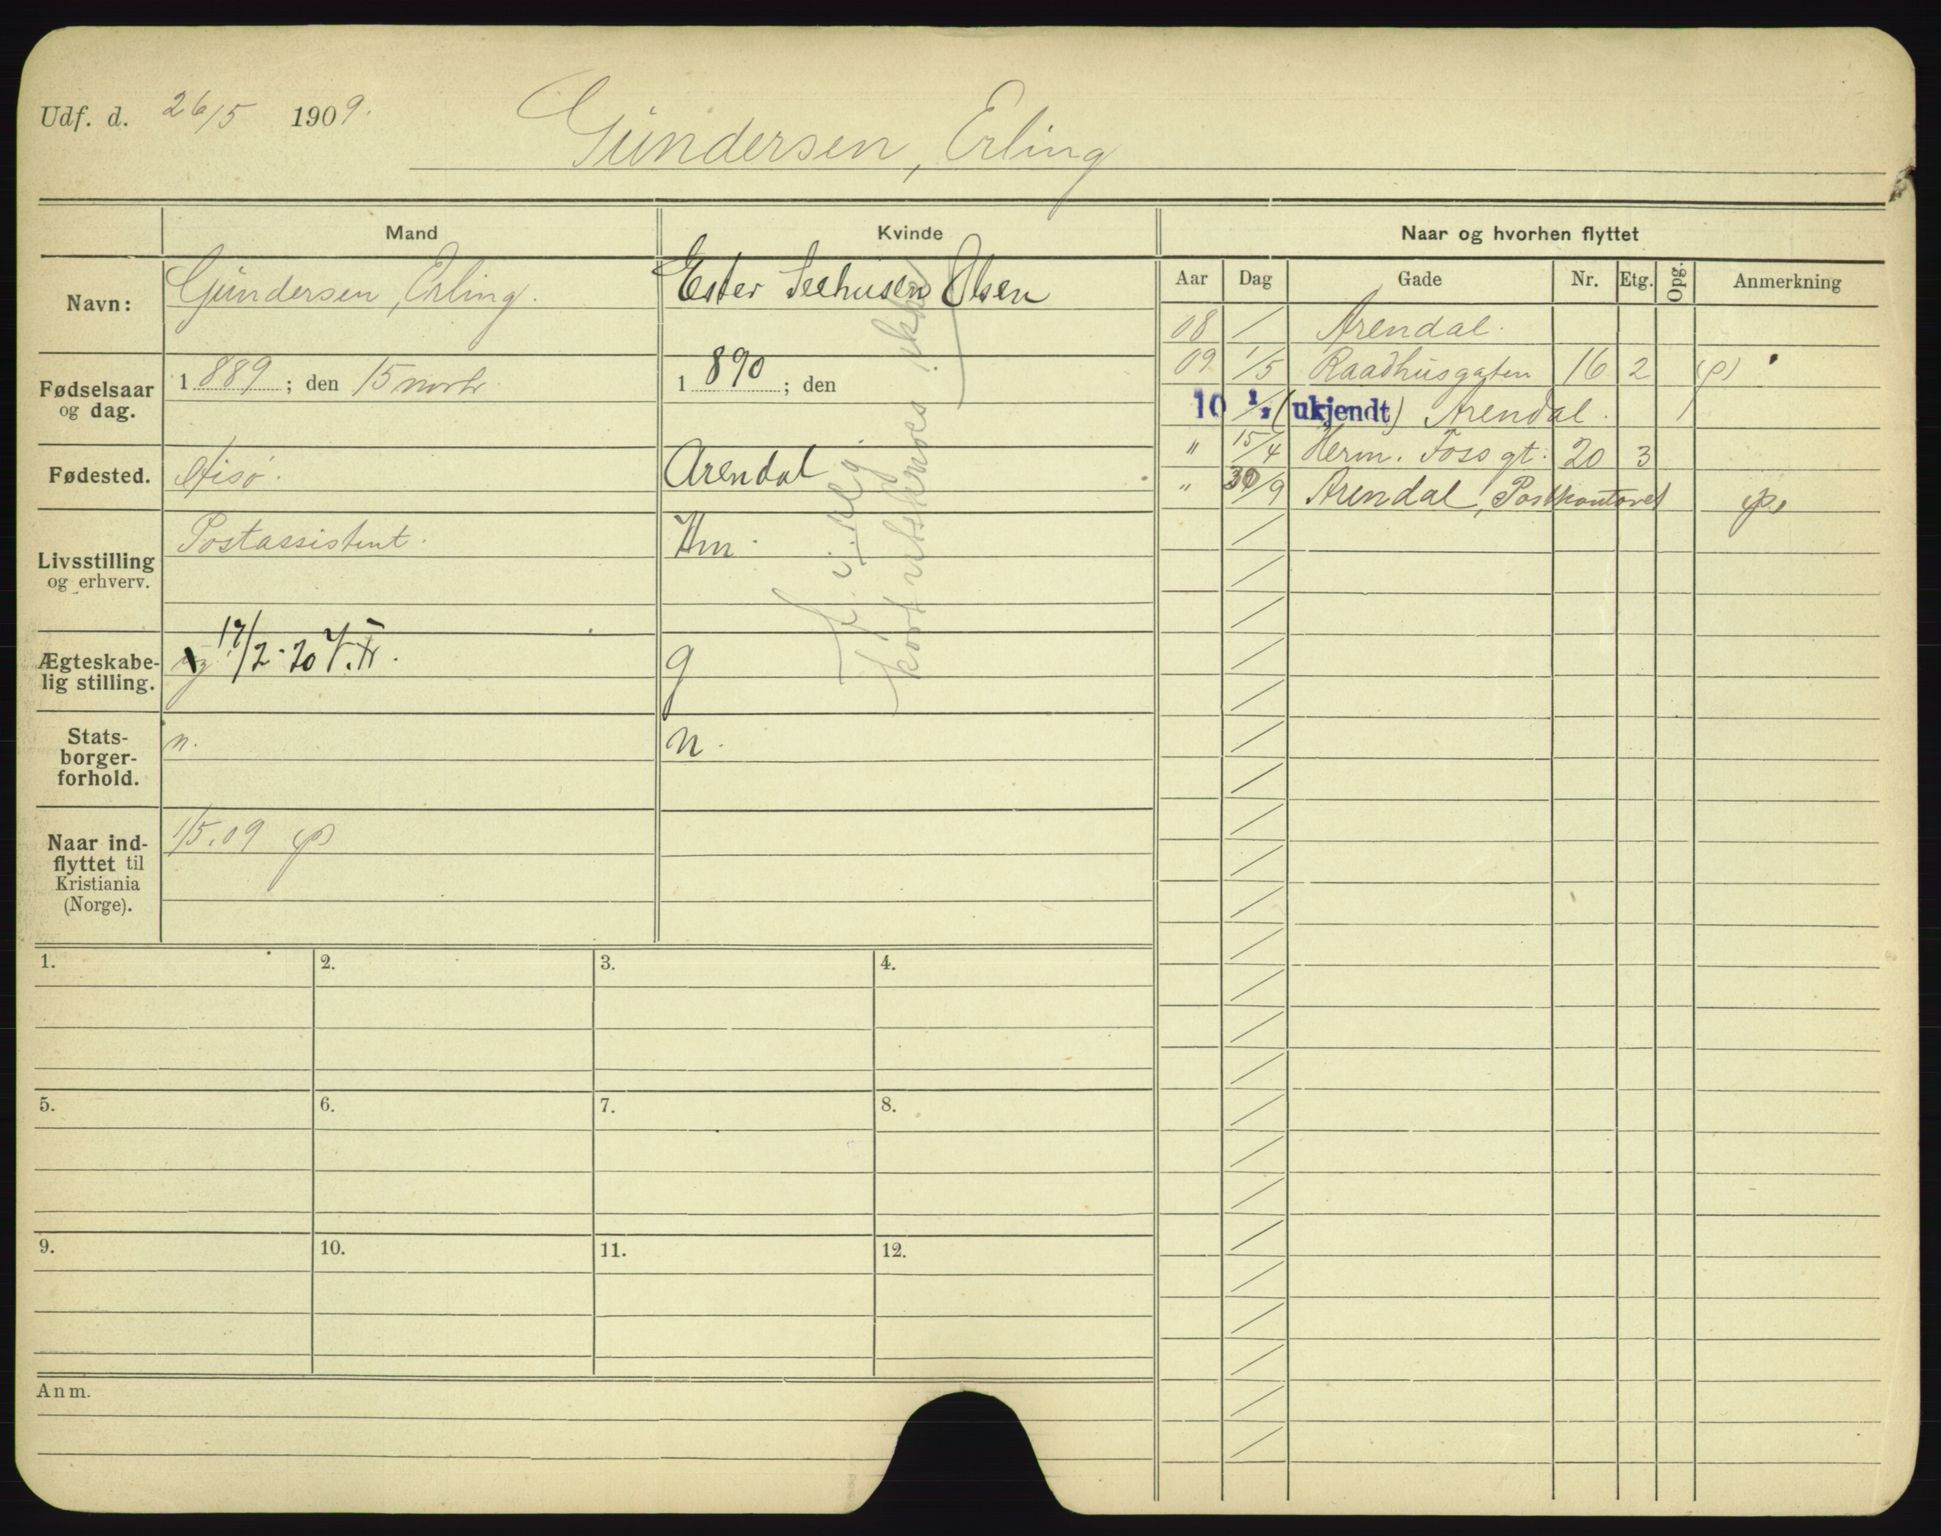 Udf. d. 26/5 1909.
Gundersen, Erling
Mand
Kvinde
Naar og hvorhen flyttet
Navn:
Gundersen, Erling.
Ester Seehusen Olsen
Aar Dag Gade Nr. Etg. Opg. Anmerkning
08 / Arendal.
09 1/5 Raadhusgaten 16 2 (p)
10 1/1 (ukjendt) Arendal.
" 15/4 Herm. Foss gt. 20 3
" 30/9 Arendal, Postkontoret ps
Fødselsaar og dag.
1889; den 15 novb.
1890; den
Fødested.
Hisö.
Arendal
Livsstilling og erhverv.
Postassistent.
Hm.
Ægteskabelig stilling.
17/2-20
g
Statsborgerforhold.
n.
n.
Naar indflyttet til Kristiania (Norge).
1/5.09 ps
1. 2. 3. 4.
5. 6. 7. 8.
9. 10. 11. 12.
Anm.